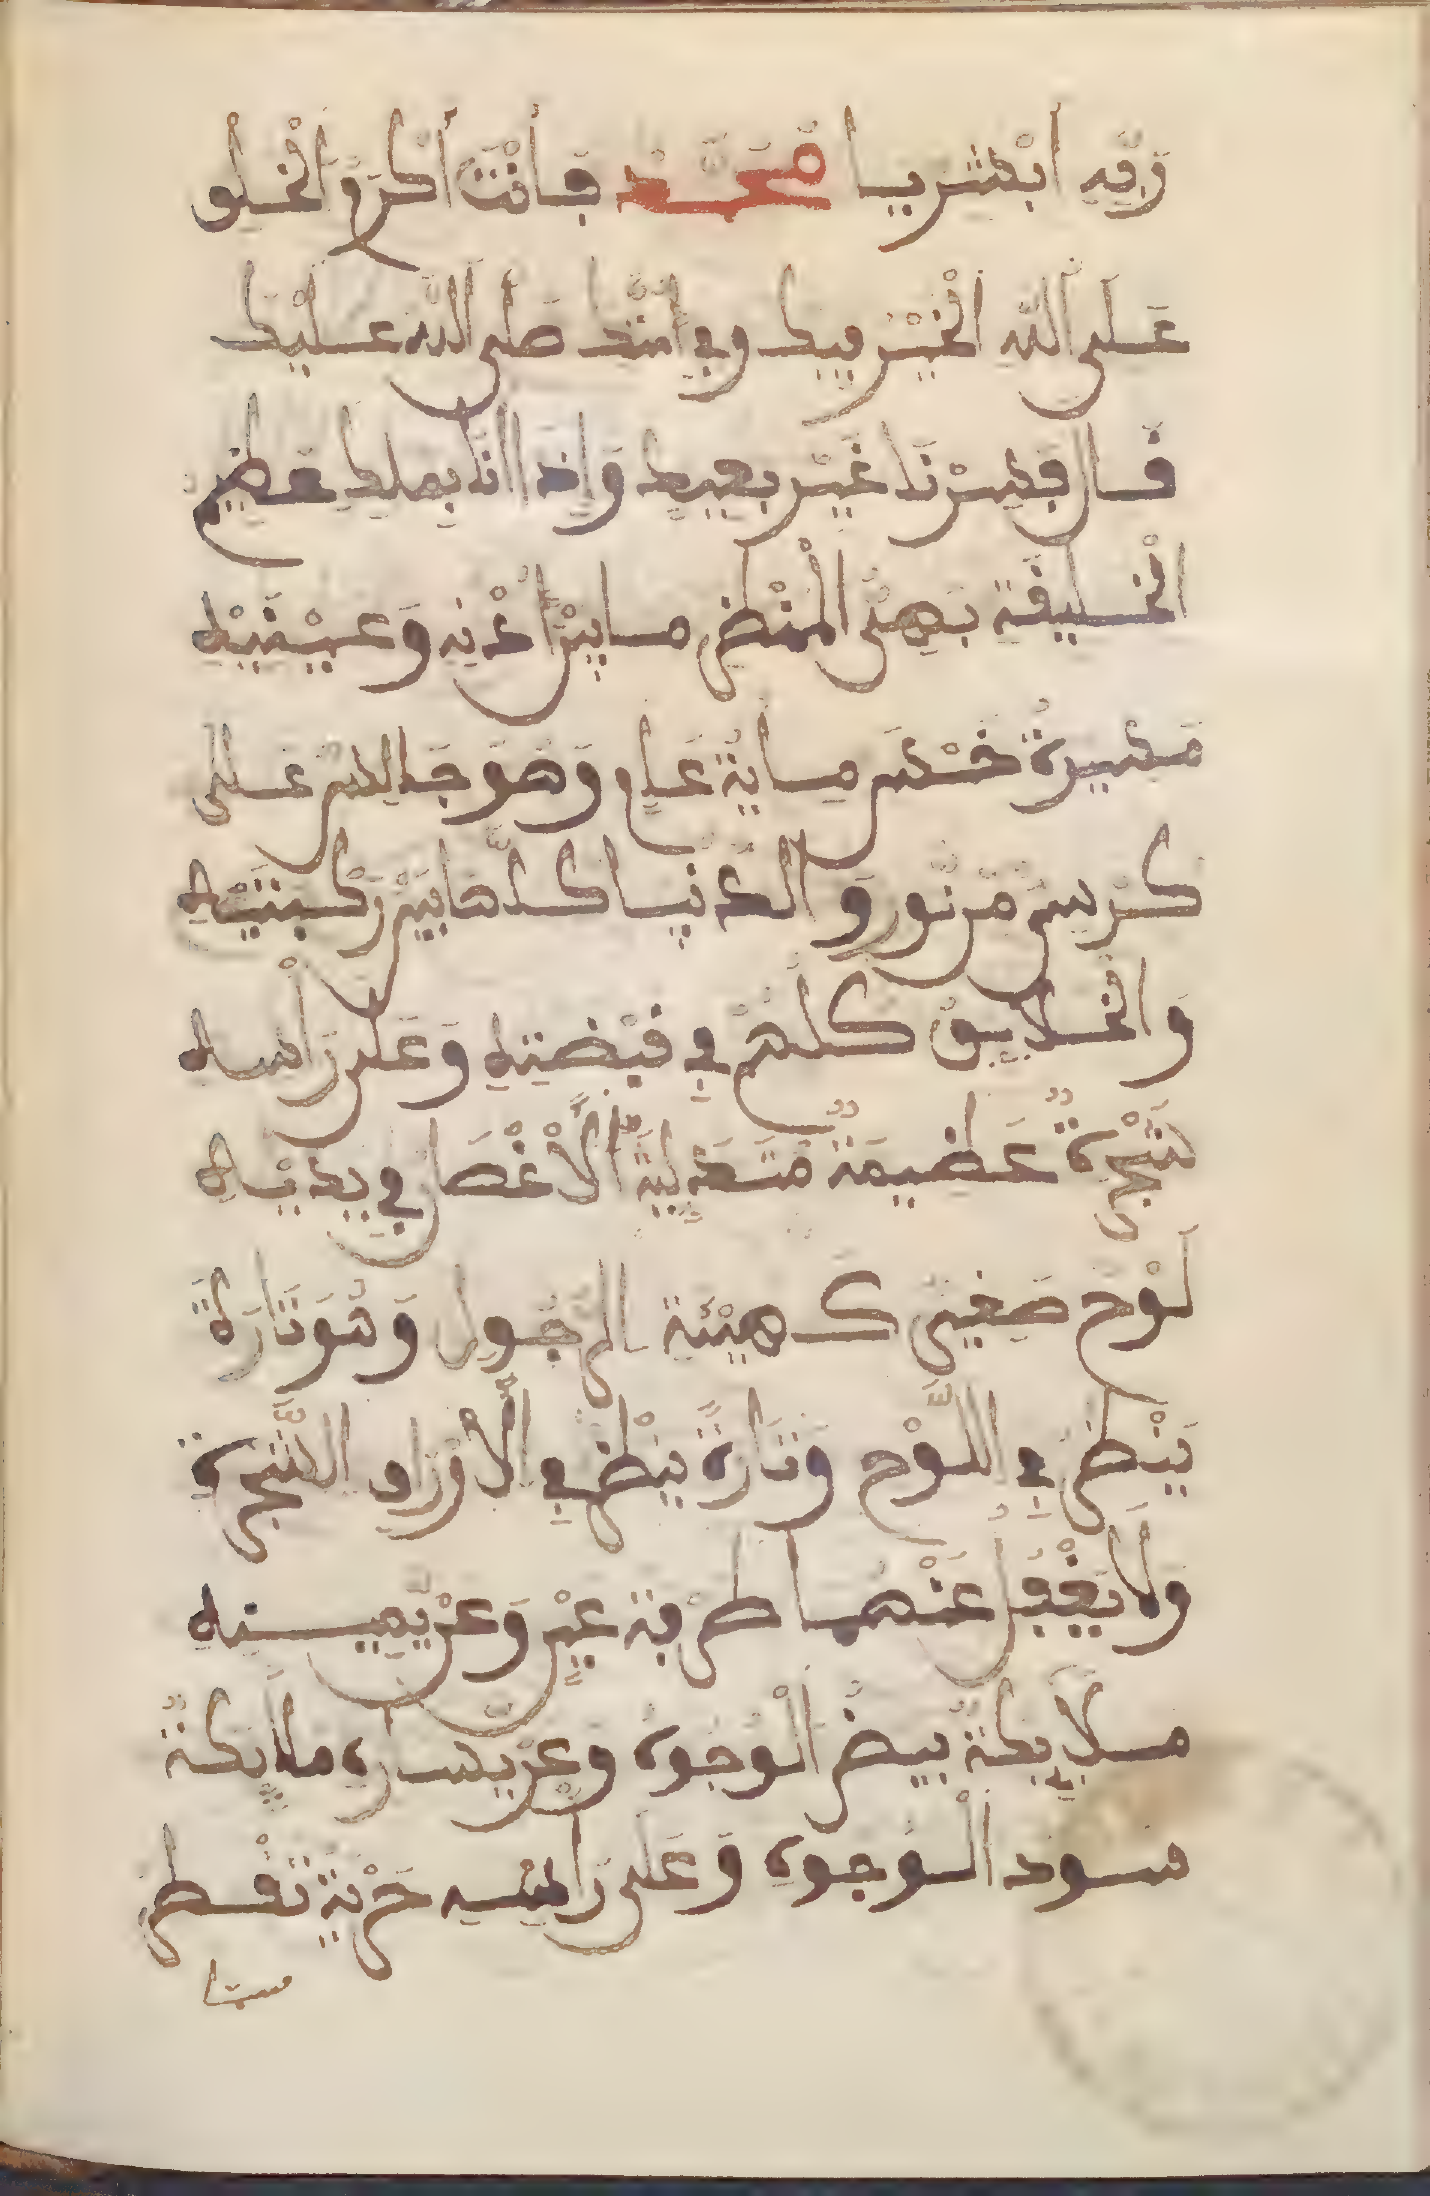 رَبِّهِ أَبْشِرْ يَا مُحَمَّدْ فَأَنْتَ أَكْرَمُ الْخَلْقِ
عَلَى اللّهِ الْخَيْرُ فِيكَ وَفِي أُمَّتِكَ صَلَّى اللّه عَلَيْكَ
قَالَ فَسِرْنَا غَيْرَ بَعِيدٍ وَإِذَا أَنَا بِمَلَكٍ عَظِيمِ
الْخَلِيقَةِ بَهِىِّ الْمَنْظَرِ مَا بَيْنَ أُذْنِهِ وَعَيْنَيْهِ
مَسِيرَةُ خَمْسِ مِايَةِ عَامٍ وَهُوَ جَالِسٌ عَلَى
كُرْسِيٍّ مِّن نُّورٍ وَالدُّنْيَا كُلُّهَا بَيْنَ رُكْبَتَيْهِ
وَالْخَلَايِقُ كُلُّهُمْ فِي قَبْضَتِهِ وَعَلَى رَأْسِهِ
شَجَرَةٌ عَظِيمَةٌ مُتَدَلِّيَةُ الْأَغْصَانِ فِي يَدَيْهِ
لَوْحٌ صَغِيرٌ كَهَيْئَةِ الرجول وَهُوَ تَارَةً
يَنْظُرُ فِي اللَّوْحِ وَتَارَةً يَنْظُرُ فِي الْأَوْرَاقِ الشَّجَرَةِ
وَلَا يَغْفُلُ عَنْهُمَا طَرْفَةَ عَيْنٍ وَعَنْ يَّمِينِهِ
مَلَايِكَةٌ بِيضُ الْوُجُوهِ وَعَنْ يَّسَارِهِ مَلَايِكَةٌ
سُودُ الْوُجُوهِ وَعَلَى رَأْسِهِ حَرْبَةٌ تَقْطُرُ
سما